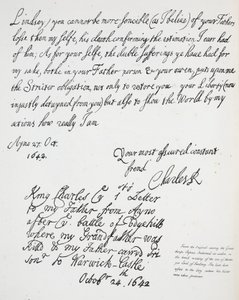 Lindsey, you cannot be more sencible (as I beleive) of your Fathers
losse then my selfe, his death confirming the estimation I ever had
of him; As for your selfe, the double Sufferings ye have had for
my sake, bothe in your Father person & your owen, puts upon me
the Stricter obligation, not only to restore you your Liberty (now
injustly detayned from you) but also to shew the World by my
actions how really I am
Ayno 27. Oct:
1642.
Your most assured constant
frend
Charles R
King Charles ye 1st's Letter
to my Father from Ayno
after ye battle of Edgehill
where my Grandfather was
kill'd & my Father carried Pri
Soner to Warwick-Castle
Octobr 24. 1642